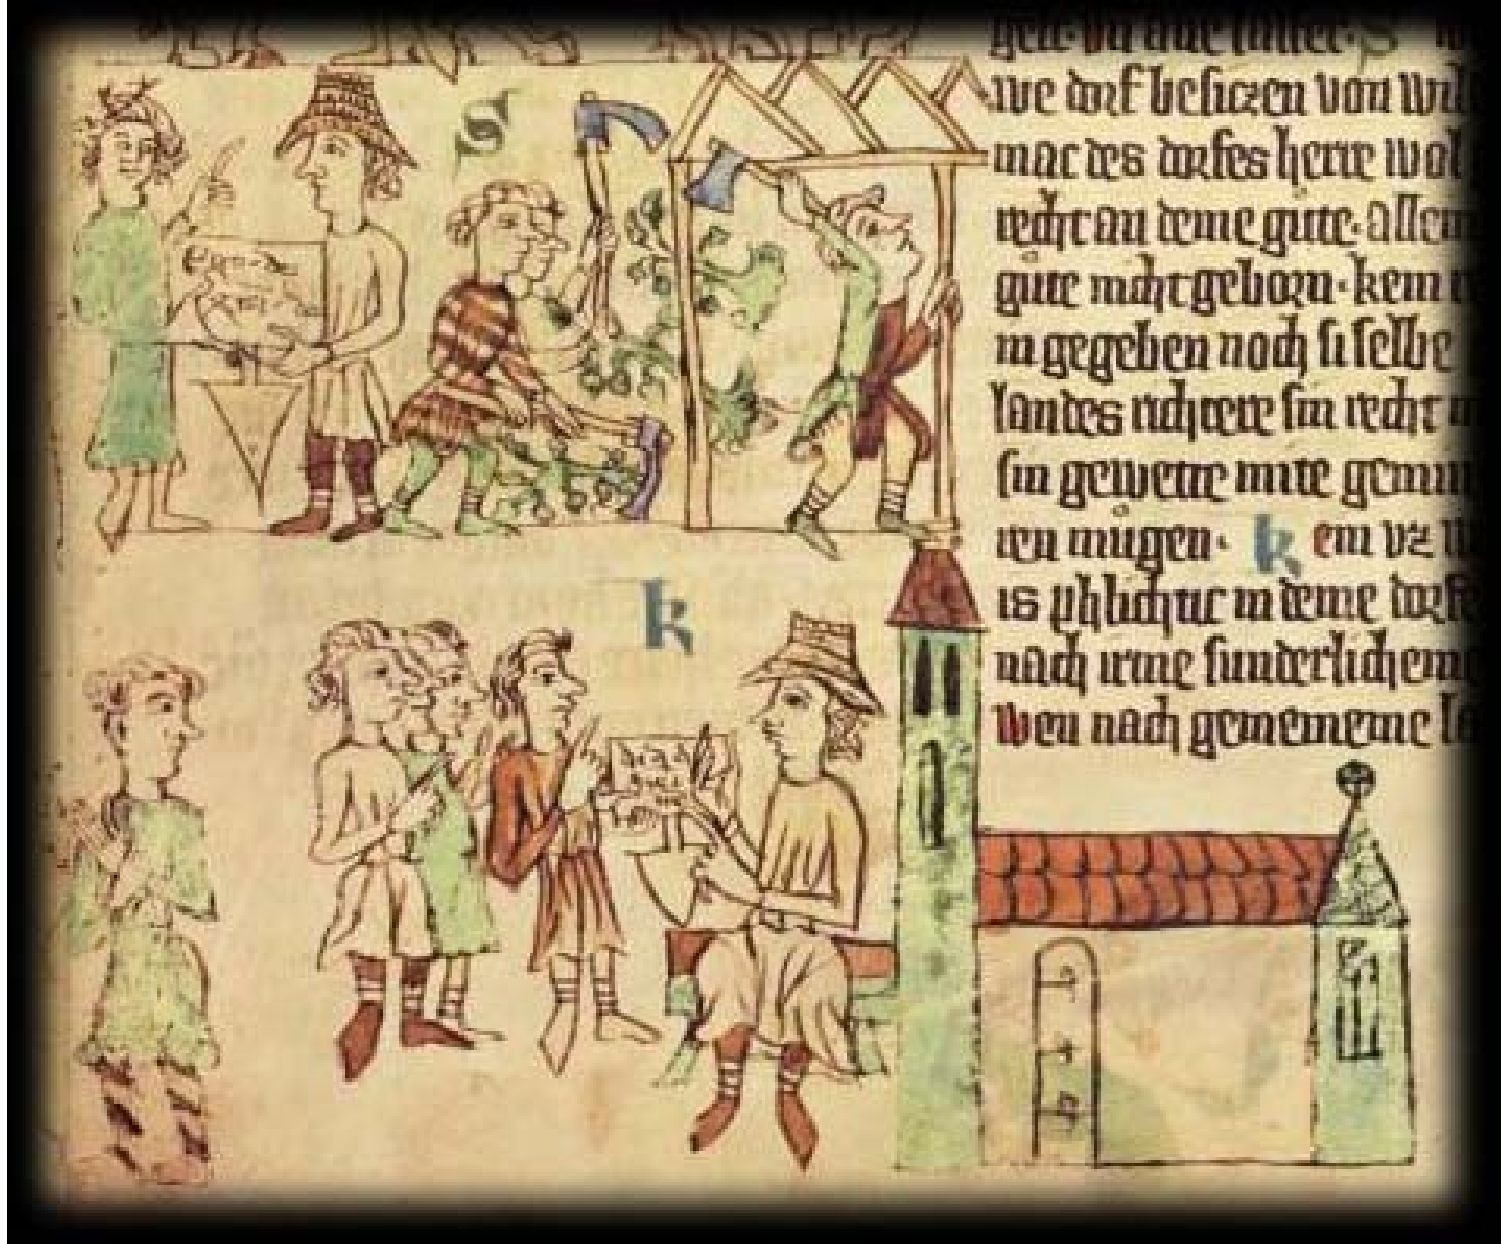 S
k
we dorf besiczen von
mac des dorfes herre wol
recht an deme gute· allein
gute nicht geborn· kein
in gegeben noch si selbe
landes richtere sin recht
sin gewette mite gemin
ren můgen· kein vz
is phlichtic in deme dorfe
nach irme sunderlicheme
wen nach gemeineme la